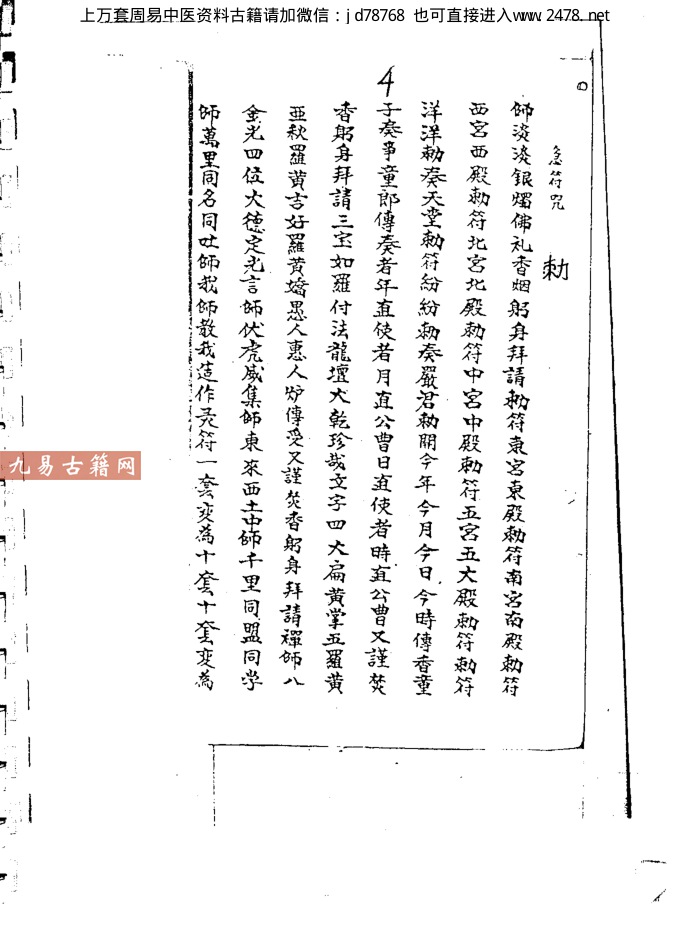 上万套周易中医资料古籍请加微信：jd78768 也可直接进入www.2478.net
4
急符咒
勅
师淡淡銀燭佛礼香烟躬身拜請勅符東宮東殿勅符南宮南殿勅符
西宮西殿勅符北宮北殿勅符中宮中殿勅符五宮五大殿勅符勅符
洋洋勅奏天堂勅符紛紛勅奏嚴君勅開今年今月今日今時傳香童
子奏事童郎傳奏者年直使者月直公曹日直使者時直公曹又謹焚
香躬身拜請三宝如羅付法龍壇大乾珍哉文字四大扁黄掌五羅黄
亞秋羅黄吉好羅黄嬌愚人惠人炉傳受又謹焚香躬身拜請禪師八
金光四位大德定光言師伏虎威集師東來西土中師千里同盟同学
師萬里同名同吐師我師教我造作灵符一套变為十套十套变為
九易古籍网